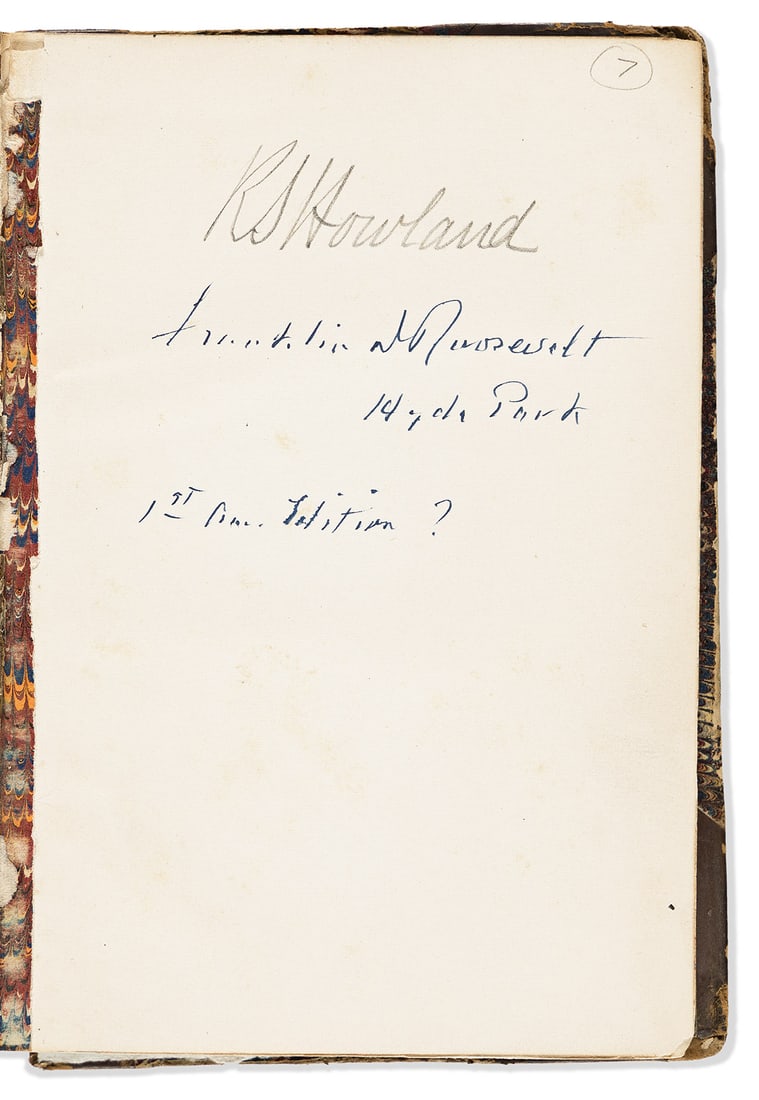 7
R S Howland
Franklin D Roosevelt
Hyde Park
1st Am. Edition ?